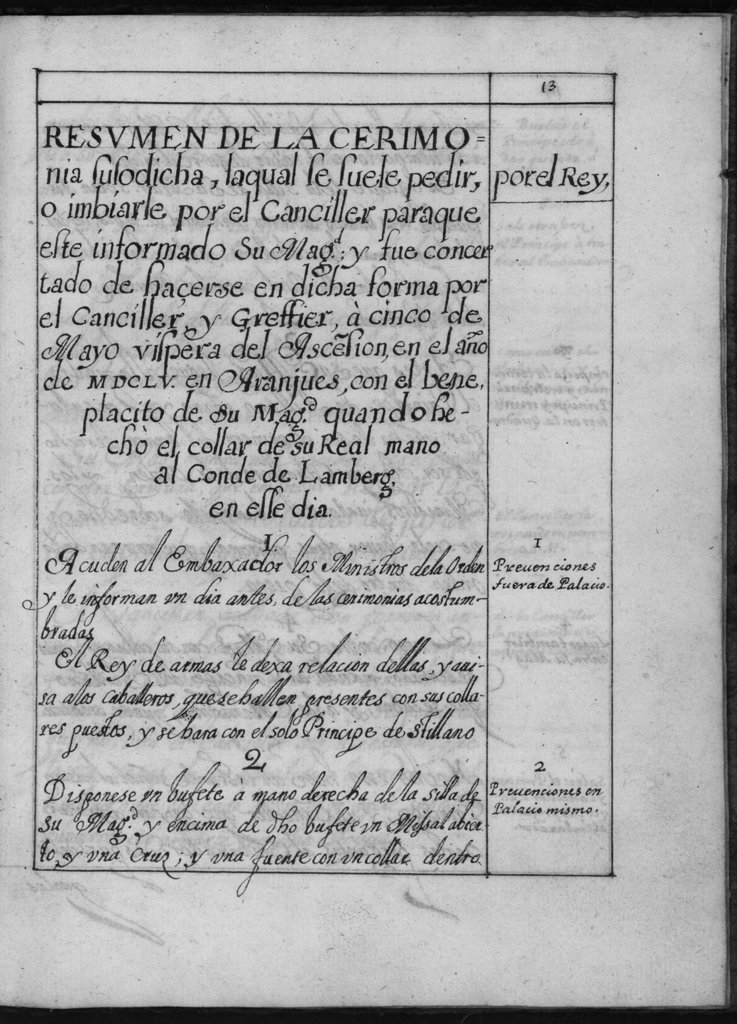 13
RESVMEN DE LA CERIMO=
nia susodicha, laqual se suele pedir, por el Rey,
o imbiarle por el Canciller paraque
este informado Su Mag.d; y fue concer
tado de haçerse en dicha forma por
el Canciller, y Greffier, à cinco de
Mayo vispera del Ascesion, en el año
de MDCLV. en Aranjues, con el bene,
placito de Su Mag.d quando he-
chò el collar de su Real mano
al Conde de Lamberg,
en esse dia.
1
Acuden al Embaxador los Ministros de la Orden
y le informan vn dia antes, de las cerimonias acostum-
bradas
El Rey de armas le dexa relacion dellas, y aui-
sa a los caballeros, que se hallen presentes con sus colla-
res puestos, y se hara con el solo Principe de Stillano
2
Disponese vn bufete à mano derecha de la silla de
su Mag.d y encima de dho bufete vn Missal abier-
to, y vna Cruz; y vna fuente con vn collar dentro
1
Preuenciones
fuera de Palacio.
2
Preuenciones en
Palacio mismo.